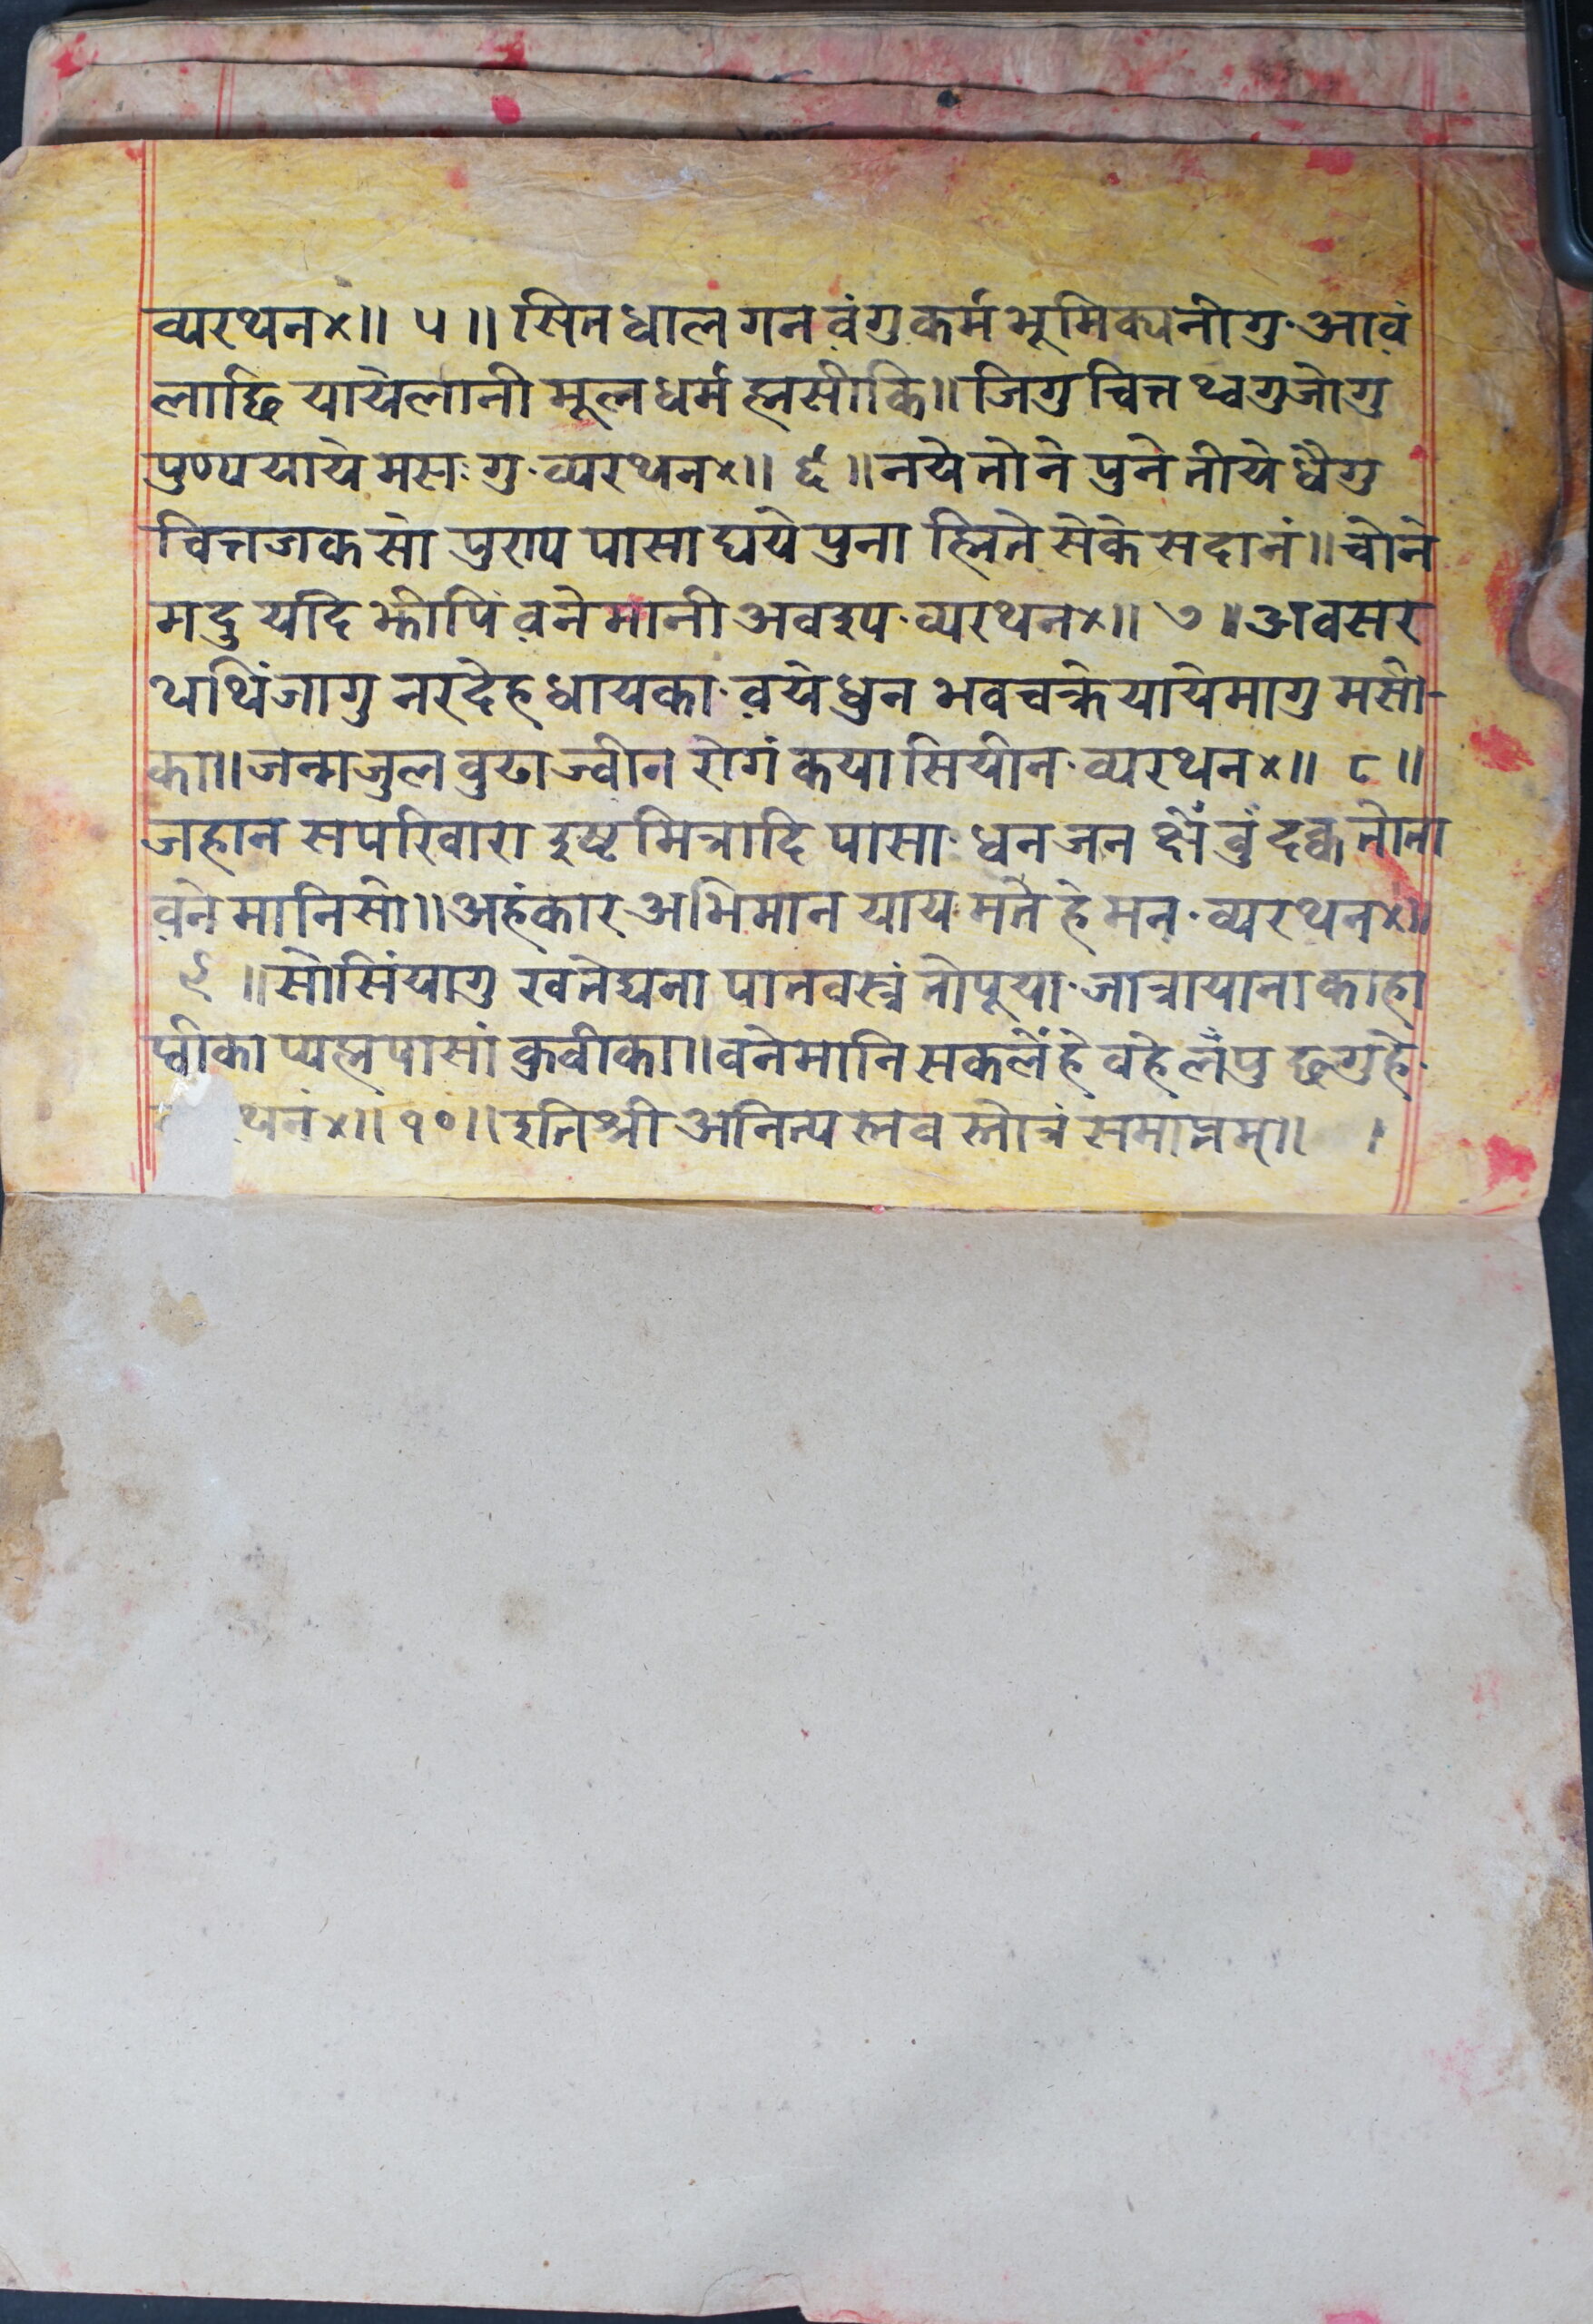 व्यरथन×॥ ५ ॥ सित धाल गन वंगु कर्म भूमि क्यनीगु·आवं
लाछि यायेलानी मूल धर्म ह्नसीकि॥ जिगु चित्त थ्वगु जोगु
पुण्य याये मसःगु·व्यरथन×॥ ६ ॥ नये तोने पुने तीये धैगु
चित्त जक सो पुराप पासा घये पुना ह्लिने सेके सदानं॥ चोने
मदु यदि झीपिं वने मानी अवइप·व्यरथन×॥ ७ ॥ अवसर
थथिंजागु नरदेह धायका·वये धुन भवचक्रे यायेमागु मसी-
का॥ जन्म जुल वुढा ज्वीन रोगं कया सियीन·व्यरथन×॥ ८ ॥
जहान सपरिवारा इष्ट मित्रादि पासा·धन जन छैं वुं दक्व तोता
वने मानि सो॥ अहंकार अभिमान याय मते हे मन·व्यरथन×॥
९ ॥ सोसिं यागु खने द्यना पानवस्त्रं तोपूया·जात्रा याना काहा
प्वीका प्यह्न पासां कुवीका॥ वने मानि सकलें हे वहेलँपु छगु हे·
थनं×॥ १० ॥ इति श्री अनित्य स्तव स्तोत्रं समाप्तम्॥ ।